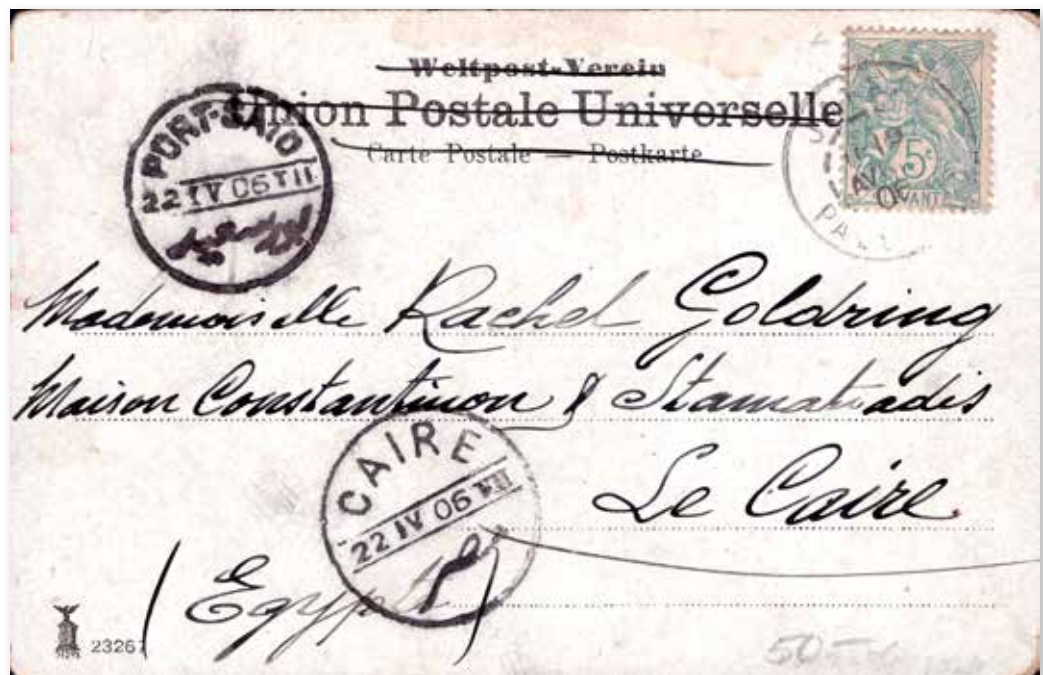 Weltpost-Verein
Union Postale Universelle
Carte Postale — Postkarte
PORT-SAID
22 IV 06 T II
5c
LEVANT
AV
06
Mademoiselle Rachel Goldring
Maison Constantinou & Stamatiadis
Le Caire
CAIRE
22 IV 06
(Egypte)
23267
50-